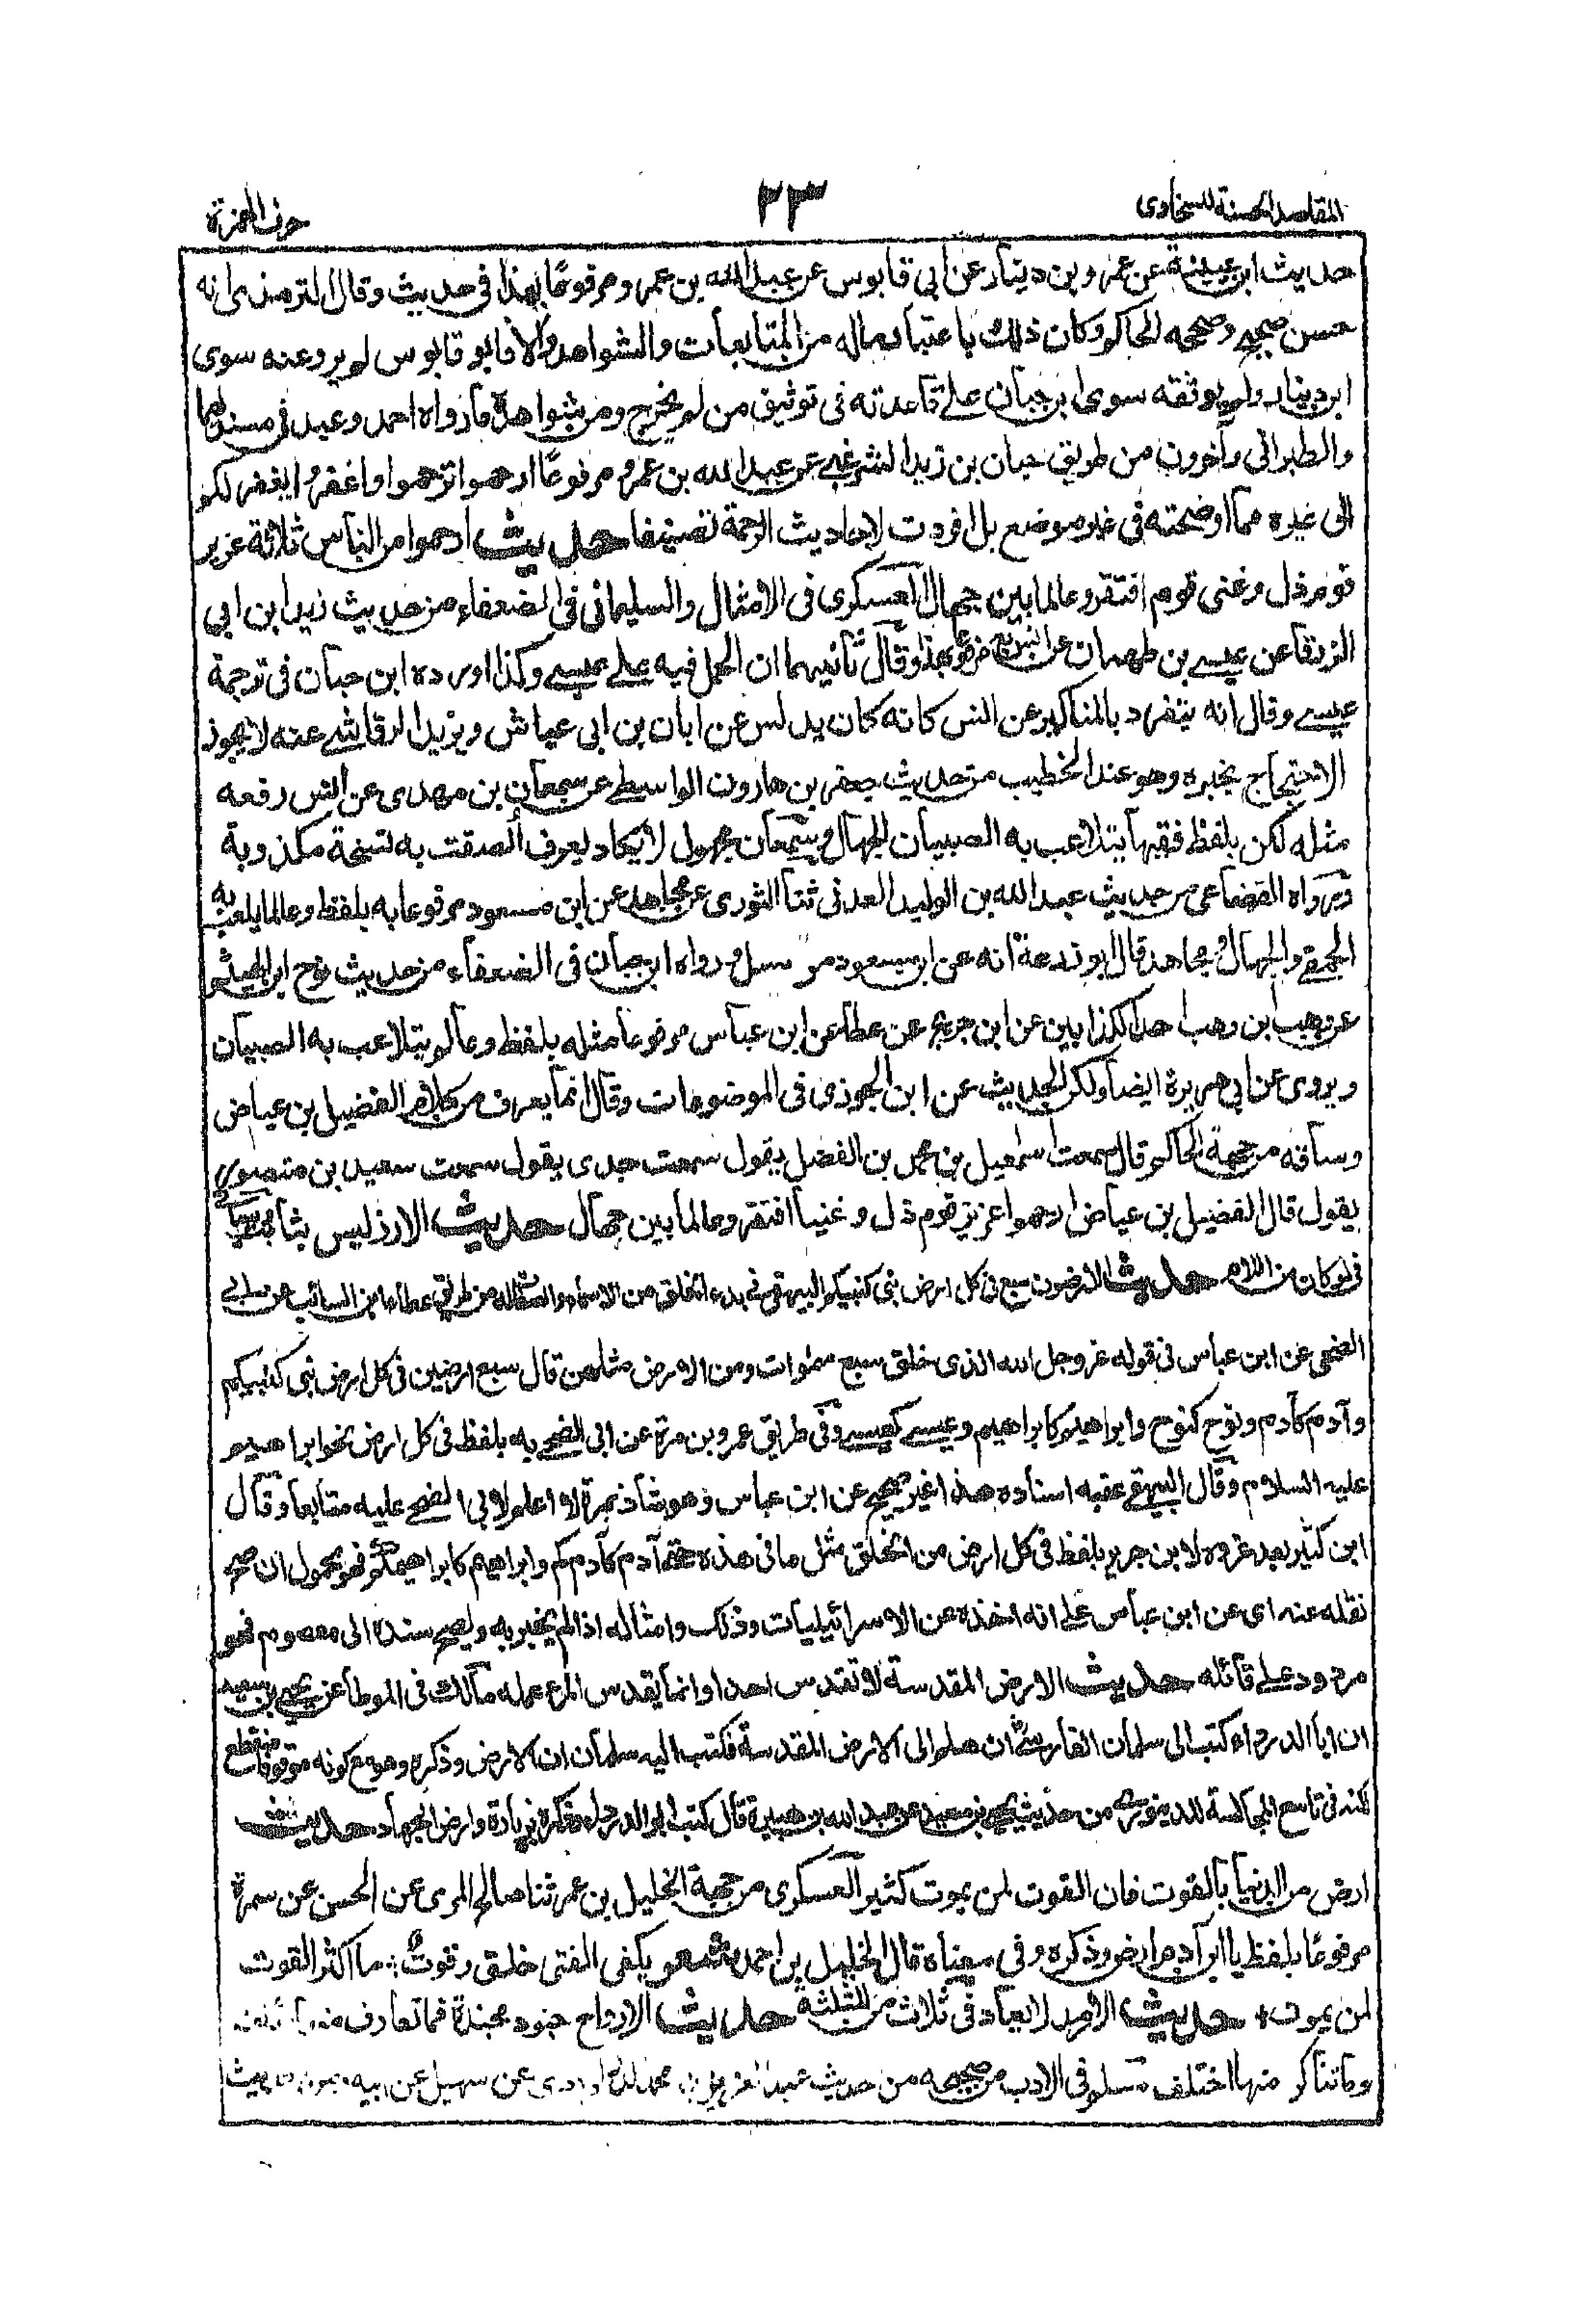 المقاصد الحسنة للسخاوی
٣٣
حرف الهمزة
حديث ابن عيينة عن عمرو بن دينار عن ابي قابوس عن عبد الله بن عمرو مرفوعًا بهذا فى حديث وقال الترمذى انه
حسن صحيح وصححه الحاكم وكان ذلك باعتبار ماله من المتابعات والشواهد والا فابو قابوس لم يرو عنه سوى
ابن دينار ولم يوثقه سوى ابن حبان على قاعدته فى توثيق من لم يخرج ومن شواهده ما رواه احمد وعبد فى مسنديهما
والطبرانى وآخرون من طريق حبان بن زيد الشرعبى عن عبد الله بن عمرو مرفوعًا ارحموا ترحموا واغفروا يغفر لكم
الى غيره مما اوضحته فى غير موضع بل افردت لاحاديث الرحمة تصنيفا حديث ارحموا من الناس ثلاثة عزيز
قوم ذل وغنى قوم افتقر وعالما بين جهال العسكرى فى الامثال والسليمانى فى الضعفاء من حديث زيد ابن ابي
الزرقا عن عيسى بن طهمان عن انس به مرفوعا بهذا وقال ثانيهما ان الحمل فيه على عيسى وكذا اورده ابن حبان فى ترجمة
عيسى وقال انه يتفرد بالمناكير عن انس كانه كان يدلس عن ابان بن ابى عياش ويزيد الرقاشى عنه لا يجوز
الاحتجاج بخبره وهو عند الخطيب من حديث جعفر بن هارون الواسطى عن سمعان بن مهدى عن انس رفعه
مثله لكن بلفظ فقيها يتلاعب به الصبيان الجهال وسمعان مجهول لا يكاد يعرف الصقت به نسخة مكذوبة
ورواه القضاعى من حديث عبد الله بن الوليد العدنى ثنا الثورى عن مجاهد عن ابن مسعود مرفوعا به بلفظ وعالما يلعب به
الحمقى والجهال ومجاهد قال ابو زرعة انه عن ابن مسعود مرسل ورواه ابن حبان فى الضعفاء من حديث نوح ابن الهيثم
عن وهب ابن وهب احد الكذابين عن ابن جريج عن عطا عن ابن عباس مرفوعا مثله بلفظ وعالم يتلاعب به الصبيان
ويروى عن ابي هريرة ايضا ولكن الحديث عن ابن الجوزى فى الموضوعات وقال انما يعرف من كلام الفضيل بن عياض
وساقه من جهة الحاكم قال سمعت اسمعيل بن محمد بن الفضل يقول سمعت جدى يقول سمعت سعيد بن منصور
يقول قال الفضيل بن عياض ارحموا عزيز قوم ذل وغنيا افتقر وعالما بين جهال حديث الارز ليس بثابت
فى لو كان من اللام حديث الارضون سبع فى كل ارض نبى كنبيكم البيهقى فى بدء الخلق من الاسماء والصفات له من طريق عطاء ابن السائب عن ابى
الضحى عن ابن عباس فى قوله عز وجل الله الذى خلق سبع سموات ومن الارض مثلهن قال سبع ارضين فى كل ارض نبى كنبيكم
وآدم كآدم ونوح كنوح وابراهيم كابراهيم وعيسى كعيسى وفى طريق عمرو بن مرة عن ابى الضحى به بلفظ فى كل ارض نحو ابراهيم
عليه السلام وقال البيهقى عقبه اسناده هذا غير صحيح عن ابن عباس وهو شاذ بمرة لا اعلم لابى الضحى عليه متابعا وقال
ابن كثير بعد عزوه لابن جرير بلفظ فى كل ارض من الخلق مثل ما فى هذه حتى آدم كآدمكم وابراهيم كابراهيمكم فهو محمول ان صح
نقله عنه اى عن ابن عباس على انه اخذه عن الاسرائيليات وذلك وامثاله اذا لم يخبر به ويصح سنده الى معصوم فهو
مردود على قائله حديث الارض المقدسة لا تقدس احدا وانما يقدس المرء عمله مالك فى الموطا عن يحيى بن سعيد
ان ابا الدرداء كتب الى سلمان الفارسى ان هلم الى الارض المقدسة فكتب اليه سلمان ان الارض وذكره وهو مع كونه موقوفا منقطع
لكنه فى تاسع المجالسة للدينورى من حديث يحيى بن سعيد عن عبد الله بن هبيرة قال كتب ابو الدرداء فذكره بزيادة وارض الجهاد حديث
ارض من الدنيا بالقوت فان القوت لمن يموت كثير العسكرى من جهة الخليل بن عمر ثنا صالح المرى عن الحسن عن سمرة
مرفوعًا بلفظ يا ابن آدم ارض وذكره وفى معناه قال الخليل بن احمد شعر يكفى الفتى خلق وقوت ؛ ما اكثر القوت
لمن يموت ؛ حديث الارمد لا يعاد فى ثلاث من المثلثة حديث الارواح جنود مجندة فما تعارف منها ائتلف
وما تناكر منها اختلف مسلم فى الادب من صحيحه من حديث عبد العزيز بن محمد الدراوردى عن سهيل عن ابيه